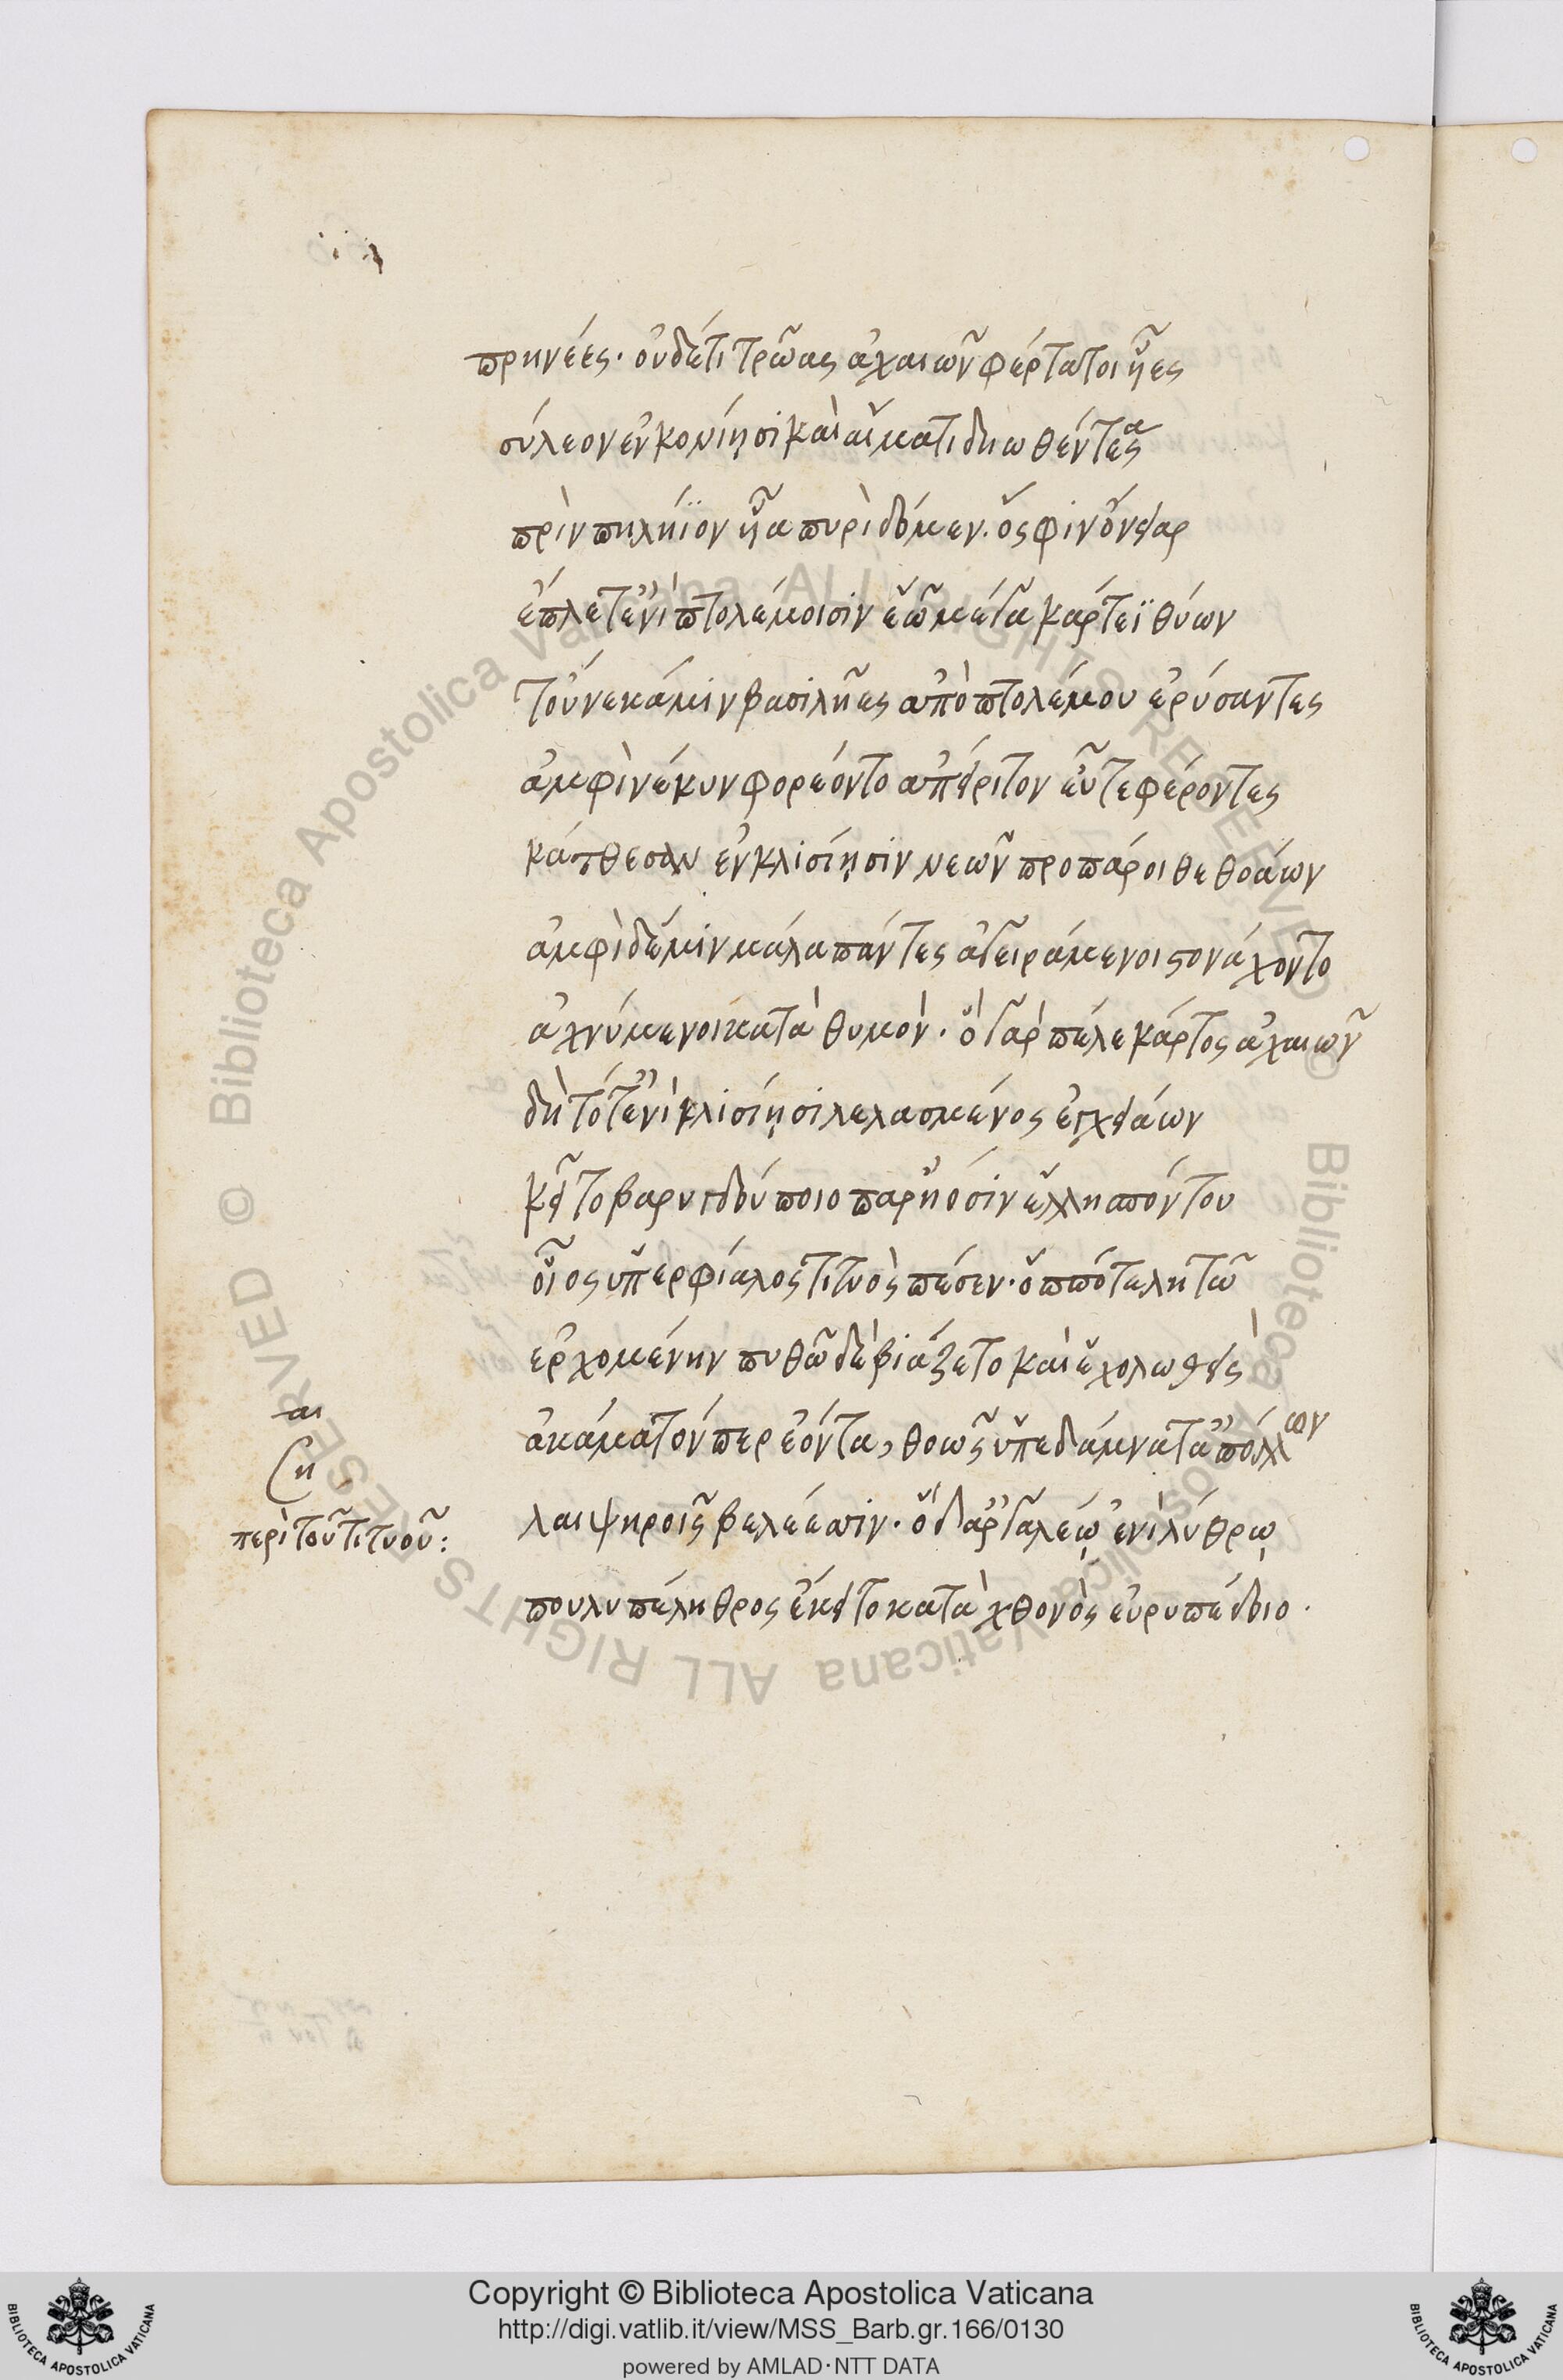 πρηνέες· οὐδ' ἔτι τρῶας ἀχαιῶν φέρτατοι υἷες
σύλεον ἐν κονίῃσι καὶ αἵματι δηωθέντεςα
πρὶν πηλήϊον υἷα πυρὶ δόμεν. ὅς φιν ὄνειαρ
ἔπλετ' ἐνὶ πτολέμοισιν ἑῷ μέγα κάρτεϊ θύων
τοὔνεκά μιν βασιλῆες ἀπὸ πτολέμου ἐρύσαντες
ἀμφὶ νέκυν φορέοντο ἀπείριτον εὖ τε φέροντες
κάτθεσαν ἐν κλισίῃσιν νεῶν προπάροιθε θοάων
ἀμφὶ δέ μιν μάλα πάντες ἀγειράμενοι στονάχοντο
ἀχνύμενοι κατὰ θυμόν. ὃ γὰρ πέλε κάρτος ἀχαιῶν
δὴ τότ' ἐνὶ κλισίῃσι λελασμένος ἐγχειάων
κεῖτο βαρυγδούποιο παρ' ἠόσιν ἑλλησπόντου
οἷος ὑπερφίαλος τιτυὸς πέσεν. ὁππότε λητῶ
ἐρχομένην πυθῶδε βιάζετο καί ἑ χολωθεὶς
ἀκάματόν περ ἐόντα, θοῶς ὑπεδάμνατ' ἀπόλλων
λαιψηροῖς βελέεσσιν. ὃ δ' ἀργαλέῳ ἐνὶ λύθρῳ
πουλυπέλεθρος ἔκειτο κατὰ χθονὸς εὐρυπέδοιο.
ση
περὶ τοῦ τιτυοῦ:
Copyright © Biblioteca Apostolica Vaticana
http://digi.vatlib.it/view/MSS_Barb.gr.166/0130
powered by AMLAD·NTT DATA
BIBLIOTECA APOSTOLICA VATICANA
BIBLIOTECA APOSTOLICA VATICANA
Biblioteca Apostolica Vaticana ALL RIGHTS RESERVED ©
Biblioteca Apostolica Vaticana ALL RIGHTS RESERVED ©